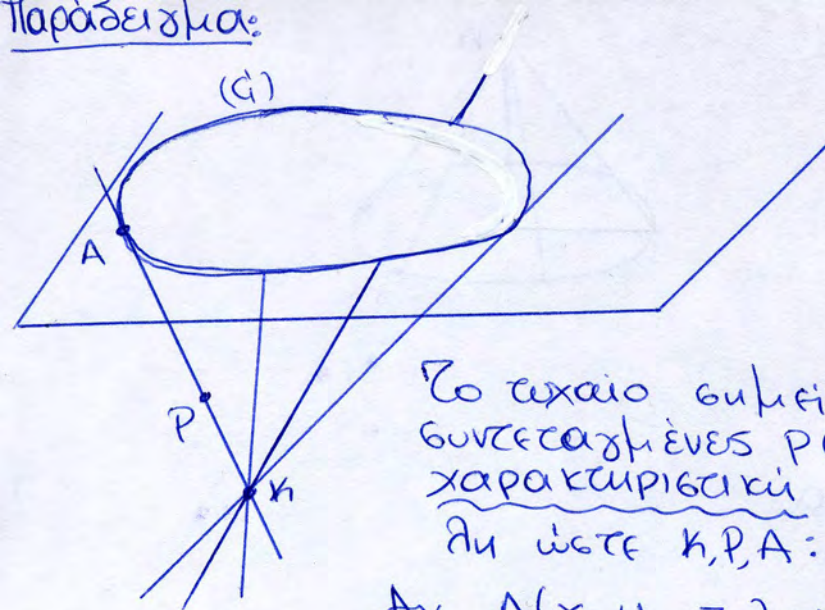 Παράδειγμα:
(C)
A
P
K
Το τυχαίο σημεί
συντεταγμένες Ρ(
χαρακτηριστική
λη ώστε Κ,Ρ,Α: